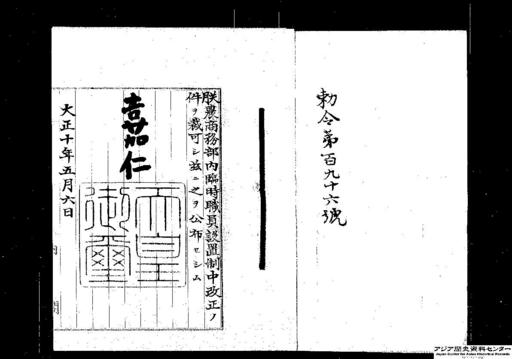 勅令第百九十六號
朕農商務部內臨時職員設置制中改正ノ
件ヲ裁可シ茲ニ之ヲ公布セシム
嘉仁
天皇
御璽
大正十年五月六日
アジア歴史資料センター
Japan Center for Asian Historical Records